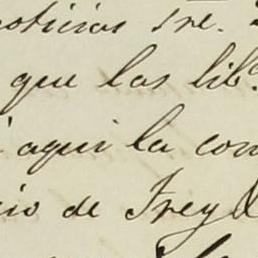 noticias Sre.
que los lib
aqui la con
cio de Frey